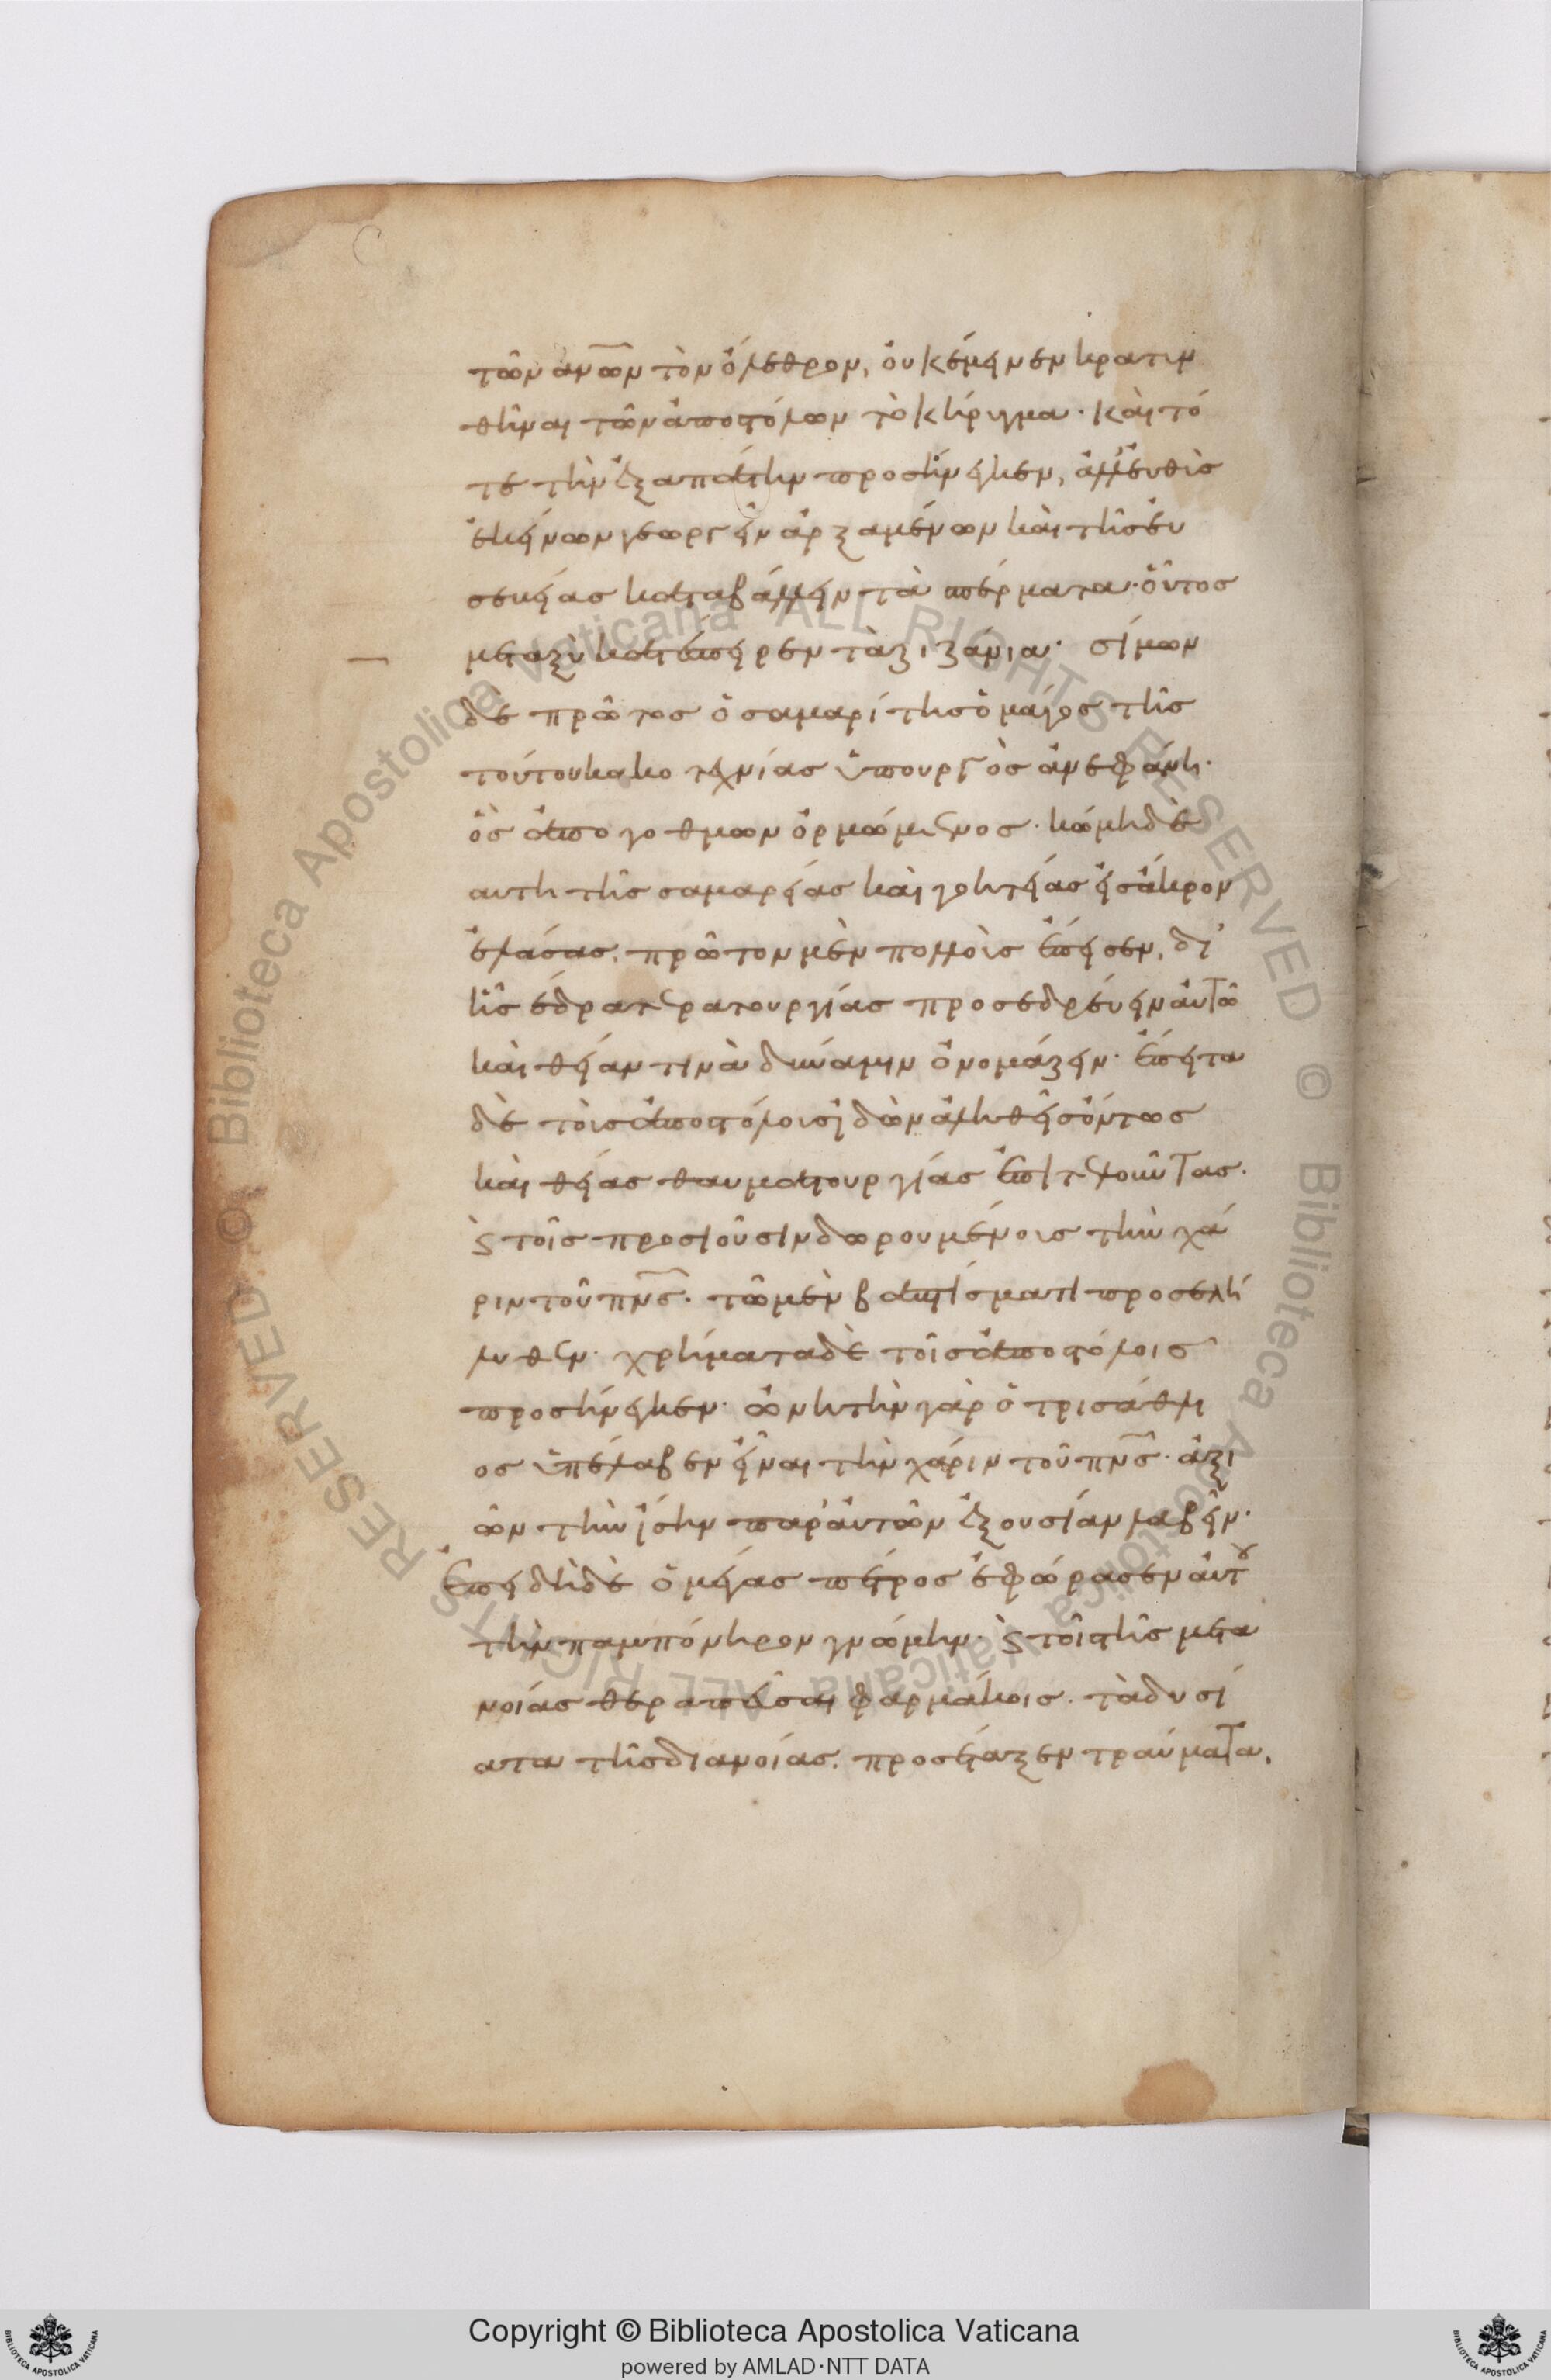 τῶν ἀν̅ω̅ν τὸν ὄλεθρον, οὐκ ἔμεινεν κρατυν
θῆναι τῶν ἀποστόλων τὸ κήρυγμα· καὶ τό
τε τὴν ἐξαπάτην προσήνεγκεν, ἀλλ' εὐθὺς
ἐκείνων γεωργεῖν ἀρξαμένων καὶ τῆς εὐ
σεβείας καταβάλλειν τὰ σπέρματα· οὗτος
μεταξὺ κατέσπειρεν τὰ ζιζάνια· σίμων
δὲ πρῶτος ὁ σαμαρίτης ὁ μάγος τῆς
τούτου κακοτεχνίας ὑπουργὸς ἀνεφάνη·
ὃς ἀπὸ γοθμων ὁρμώμενος· κώμη δὲ
αυτη τῆς σαμαρείας καὶ γοητείας εἰς ἄκρον
ἐλάσας· πρῶτον μὲν πολλοὺς ἔπεισεν, δι'
ἧς ἔδρα τερατουργίας προσεδρεύειν αὐτῶ
καὶ θείαν τινὰ δύναμιν ὀνομάζειν· ἔπειτα
δὲ τοὺς ἀποστόλους ἰδὼν ἀληθεῖς ὄντως
καὶ θείας θαυματουργίας ἐπιτελοῦντας·
ϛ τοῖς προσιοῦσιν δωρουμένους τὴν χά
ριν τοῦ πν̅ς̅· τῶ μὲν βαπτίσματι προσελή
λυθεν· χρήματα δὲ τοῖς ἀποστόλοις
προσήνεγκεν· ὠνητὴν γὰρ ὁ τρισάθλι
ος ὑπέλαβεν εἶναι τὴν χάριν τοῦ πν̅ς̅· ἀξι
ῶν τὴν ἴσην παρ' αὐτῶν ἐξουσίαν λαβεῖν·
Ἐπειδὴ δὲ ὁ μέγας πέτρος ἐφώρασεν αὐτοῦ
τὴν παμπόνηρον γνώμην· ϛ τοῖς τῆς μετα
νοίας θεραπεῦσαι φαρμάκοις· τὰ δυσί
ατα τῆς διανοίας· προσέταξεν τραύματα,
Copyright © Biblioteca Apostolica Vaticana
powered by AMLAD·NTT DATA